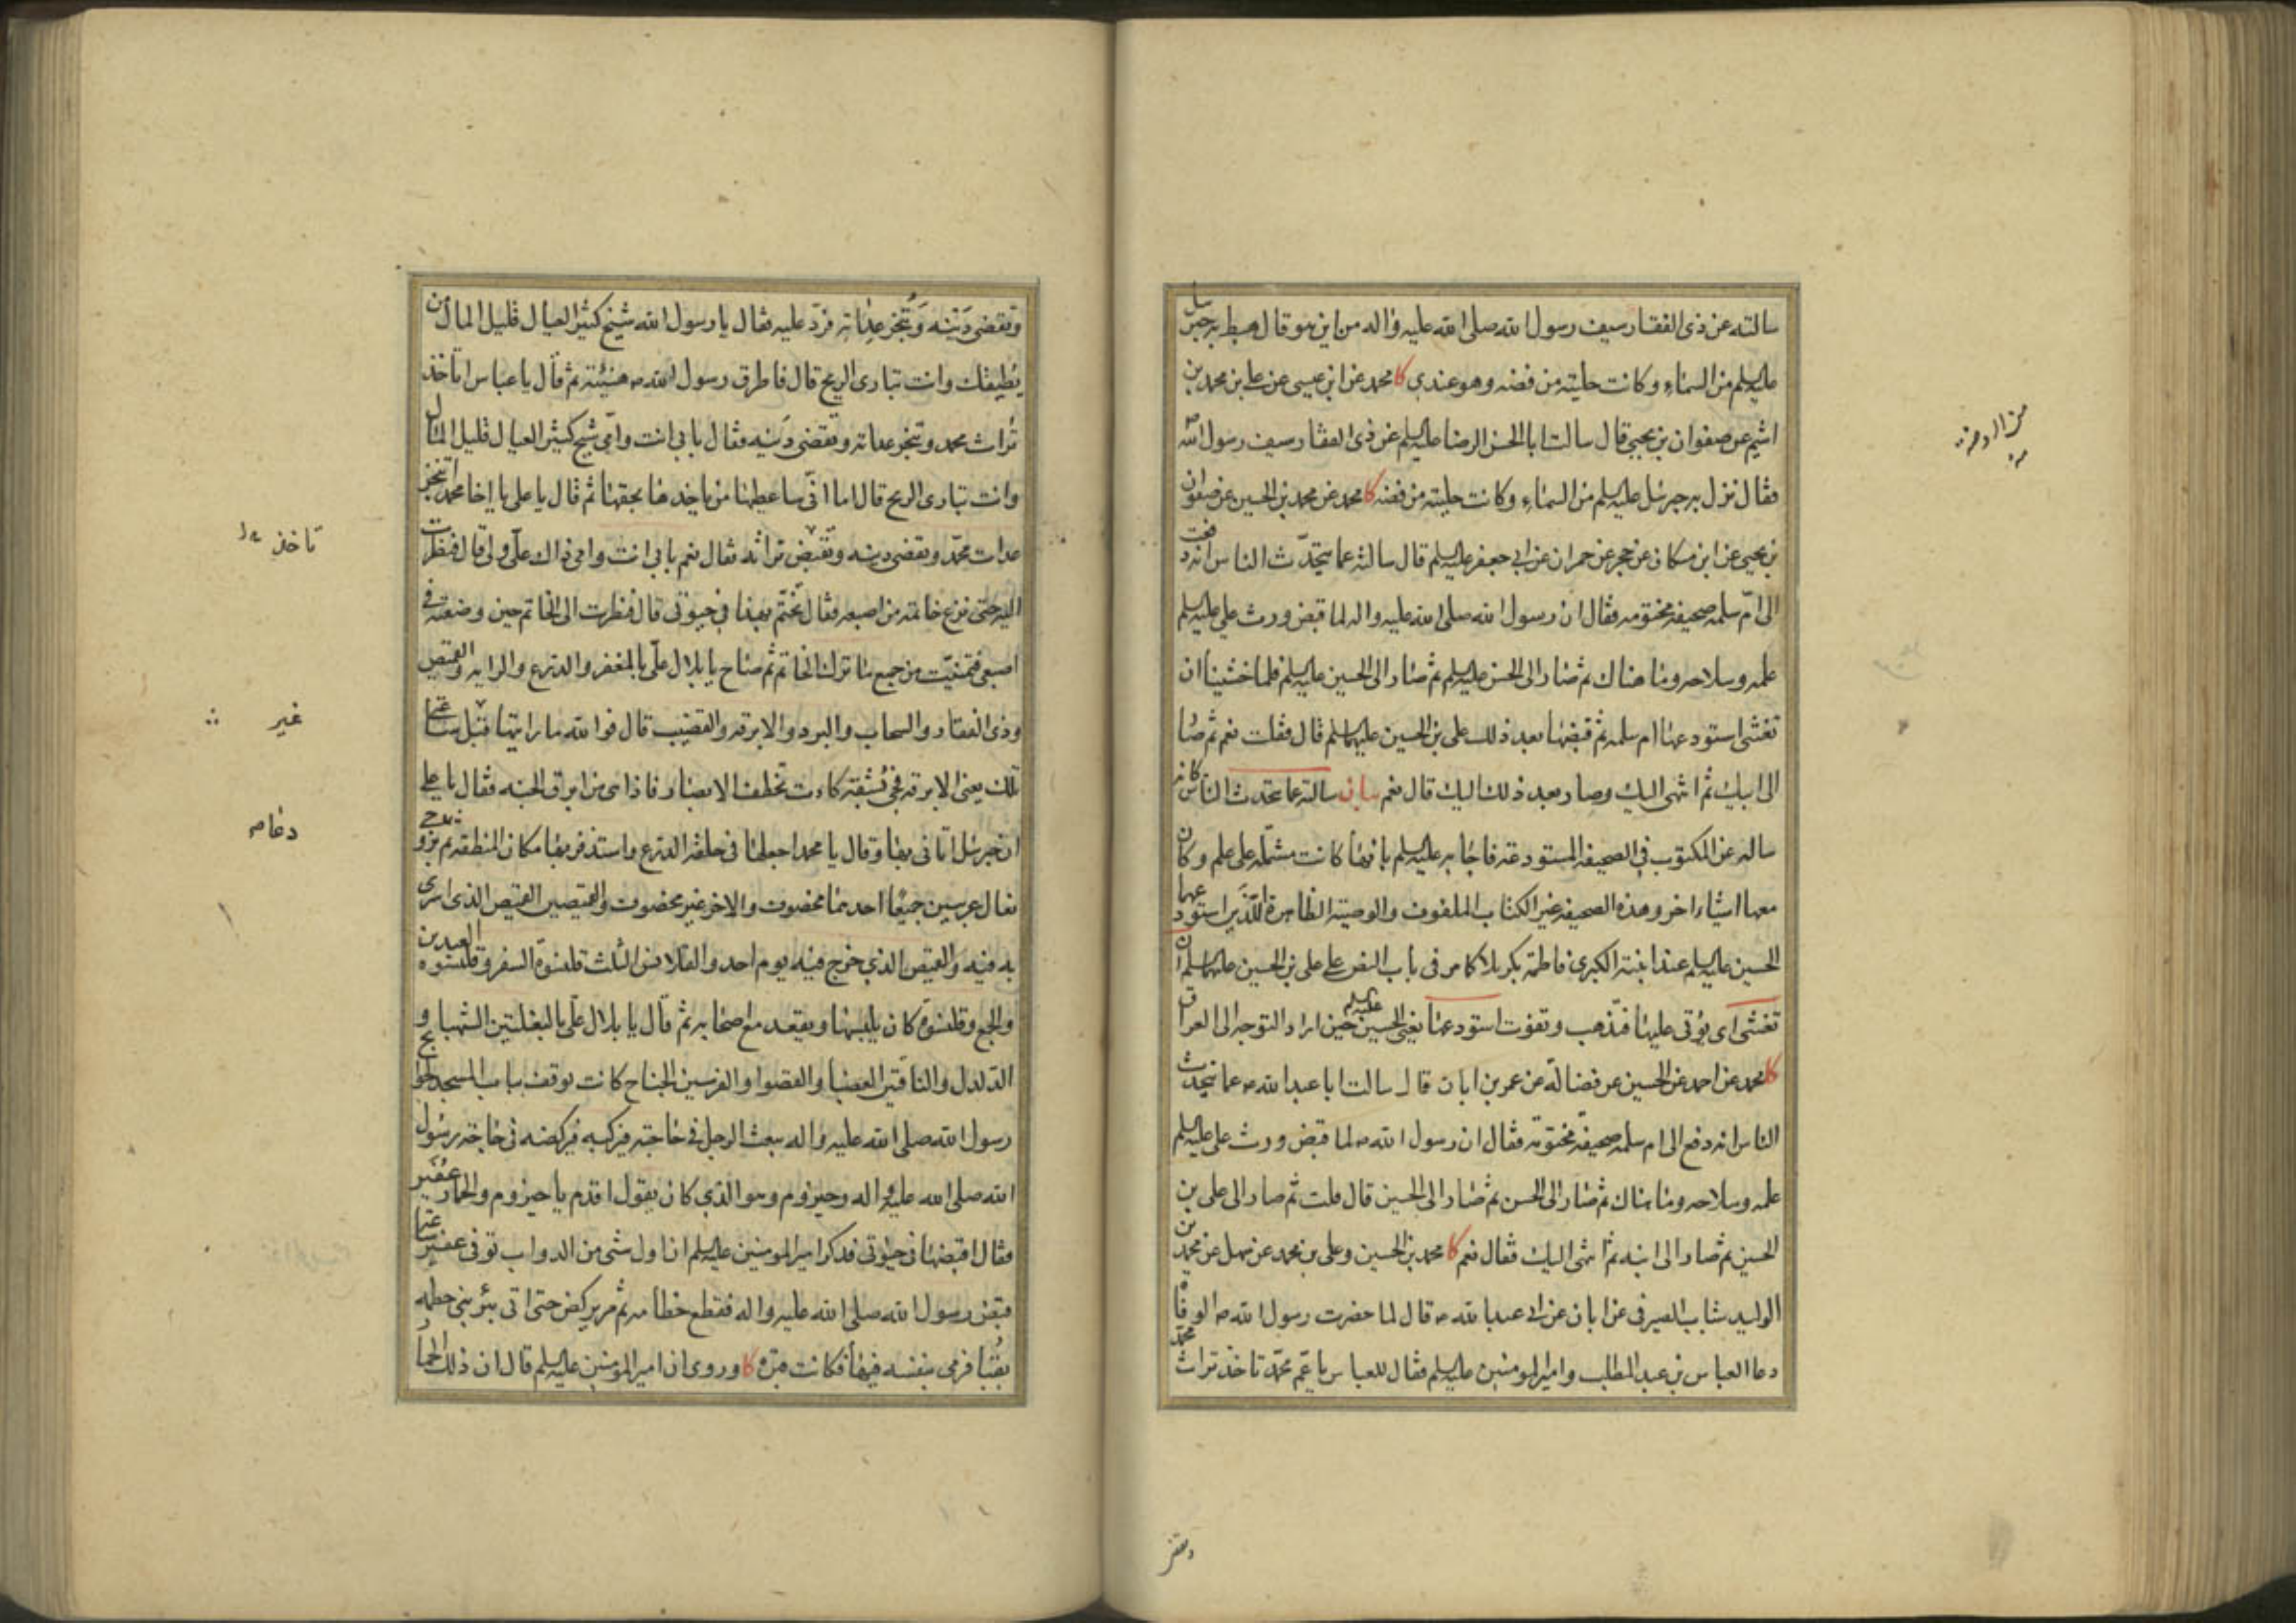 سالته عن ذى الفقار سيف رسول الله صلى الله عليه واله من اين هو قال هبط به جبرئيل
عليه السلم من السماء وكانت حليته من فضه وهو عندي كا محمد عن ابن عيسى عن علي بن محمد بن
اشيم عن صفوان بن يحيى قال سالت ابا الحسن الرضا عليه السلم عن ذى الفقار سيف رسول الله ص
فقال نزل به جبرئيل عليه السلم من السماء وكانت حليته من فضه كا محمد عن محمد بن الحسين عن صفوان
بن يحيى عن ابن مسكان عن حجر عن حمران عن ابي جعفر عليه السلم قال سالته عما يتحدّث الناس انه دفعت
الى امّ سلمه صحيفه مختومه فقال ان رسول الله صلى الله عليه واله لما قبض ورث علي عليه السلم
علمه وسلاحه وما هناك ثم صار الى الحسن عليه السلم ثم صار الى الحسين عليه السلم فلما خشينا ان
نغشى استودعها ام سلمه ثم قبضها بعد ذلك على بن الحسين عليهما السلم قال فقلت نعم ثم صار
الى ابيك ثم انتهى اليك وصار بعد ذلك اليك قال نعم بيان سالته عما يتحدث الناس كانه
ساله عن المكتوب في الصحيفه المستودعة فاجابه عليه السلم بانها كانت مشتمله على علم وكان
معها اشياء اخر وهذه الصحيفه غير الكتاب الملفوف والوصيه الظاهرة اللّذين استودعهما
الحسين عليه السلم عند ابنته الكبرى فاطمة بكربلا كا مر فى باب النص على على بن الحسين عليهما السلم ان
نغشى اى يؤتى علينا فيذهب وتفوت استودعها يعني الحسين عليه السلم حين اراد التوجه الى العراق
كا محمد عن احمد عن الحسين عن فضالة عن عمر بن ابان قال سالت ابا عبدالله ع عما يتحدث
الناس انه دفع الى ام سلمه صحيفه مختومة فقال ان رسول الله ص لما قبض ورث على عليه السلم
علمه وسلاحه وما هناك ثم صار الى الحسن ثم صار الى الحسين قال قلت ثم صار الى على بن
الحسين ثم صار الى ابنه ثم انتهى اليك فقال نعم كا محمد بن الحسين وعلى بن محمد عن سهل عن محمد بن
الوليد شباب الصيرفى عن ابان عن ابي عبدالله ع قال لما حضرت رسول الله ص الوفاه
دعا العباس بن عبد المطلب وامير المومنين عليه السلم فقال للعباس يا عم محمّد تاخذ تراث محمّد
وتقضى دَينه وتُنجز عِداته فردّ عليه فقال يا رسول الله شيخ كثير العيال قليل المال من
يُطيقك وانت تبارى الريح قال فاطرق رسول الله ص هنيئة ثم قال يا عباس اتاخذ
تُراث محمد وتنجز عداته وتقضى دَينه فقال بابى انت وامّى شيخ كثير العيال قليل المال
وانت تبارى الريح قال اما انّى ساعطيها من ياخذها بحقها ثم قال يا على يا اخا محمد اتنجز
عدات محمّد وتقضى دينه وتقبض تراثه فقال نعم بابى انت وامى ذاك علّى ولى قال فنظرت
اليه حتى نزع خاتمه من اصبعه فقال تختّم بهذا في حيوتى قال فنظرت الى الخاتم حين وضعته في
اصبعى فتمنيّت من جميع ما ترك الخاتم ثم صاح يا بلال علّى بالمغفر والدرع والرايه والقميص
وذى الفقار والسحاب والبرد والابرقه والقضيب قال فوالله ما رايتها قبل ساعتى
تلك يعنى الابرقه فجئ بشقة كادت تخطف الابصار فاذا هى من ابرق الجنه فقال يا على
ان جبرئيل اتانى بها وقال يا محمد اجعلها فى حلقه الدرع واستذفر بها مكان المنطقه ثم دعا بزوجى
نعال عربيين جميعًا احدهما مخصوف والاخر غير مخصوف والقميصين القميص الذى اسرى
به فيه والقميص الذي خرج فيه يوم احد والقلانس الثلث قلنسوة السفر وقلنسوه العيدين
والجمع وقلنسوة كان يلبسها ويقعد مع اصحابه ثم قال يا بلال علّى بالبغلتين الشهباء و
الدّلدل والناقتين العضباء والقصوا والفرسين الجناح كانت توقف بباب المسجد لحوائج
رسول الله صلى الله عليه واله يبعث الرجل في حاجته فيركبه فيركضه في حاجه رسول
الله صلى الله عليه واله وحيزوم وهو الذي كان يقول اقدم يا حيزوم والحمار عُفَير
فقال اقبضها فى حيوتى فذكر امير المومنين عليه السلم ان اول شى من الدواب توفى عفير ساعة
قبض رسول الله صلى الله عليه واله فقطع خطامه ثم مر يركض حتى اتى بئر بنى حطمه
بقُبا فرمى بنفسه فيها فكانت قبره كا وروى ان امير المومنين عليه السلم قال ان ذلك الحمار
تاخذ
غير
دعا
وتقضى